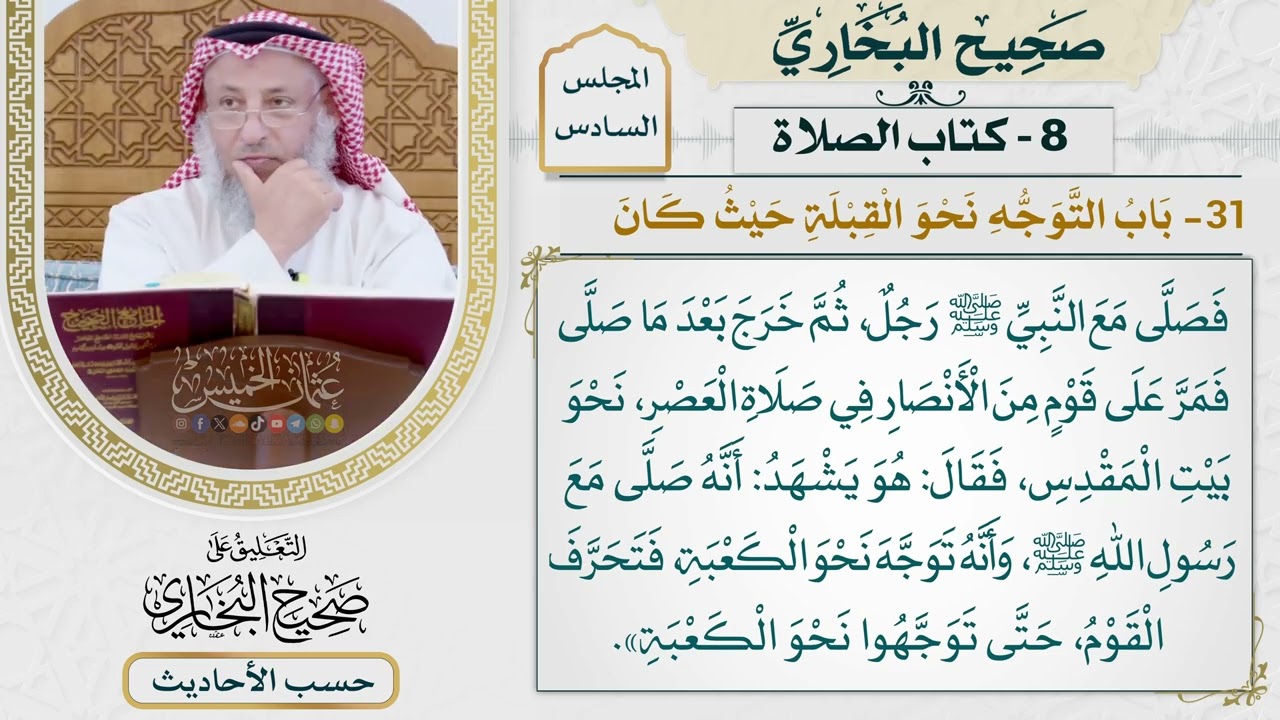 صَحِيح البُخَارِيِّ
8 - كتاب الصلاة
المجلس
السادس
31- بَابُ التَّوَجُّهِ نَحْوَ الْقِبْلَةِ حَيْثُ كَانَ
فَصَلَّى مَعَ النَّبِيِّ ﷺ رَجُلٌ، ثُمَّ خَرَجَ بَعْدَ مَا صَلَّى
فَمَرَّ عَلَى قَوْمٍ مِنَ الْأَنْصَارِ فِي صَلَاةِ الْعَصْرِ، نَحْوَ
بَيْتِ الْمَقْدِسِ، فَقَالَ: هُوَ يَشْهَدُ: أَنَّهُ صَلَّى مَعَ
رَسُولِ اللهِ ﷺ، وَأَنَّهُ تَوَجَّهَ نَحْوَ الْكَعْبَةِ، فَتَحَرَّفَ
الْقَوْمُ، حَتَّى تَوَجَّهُوا نَحْوَ الْكَعْبَةِ».
عثمان الخميس
التَّعْلِيقُ عَلَى
صَحِيحِ البُخَارِي
حسب الأحاديث